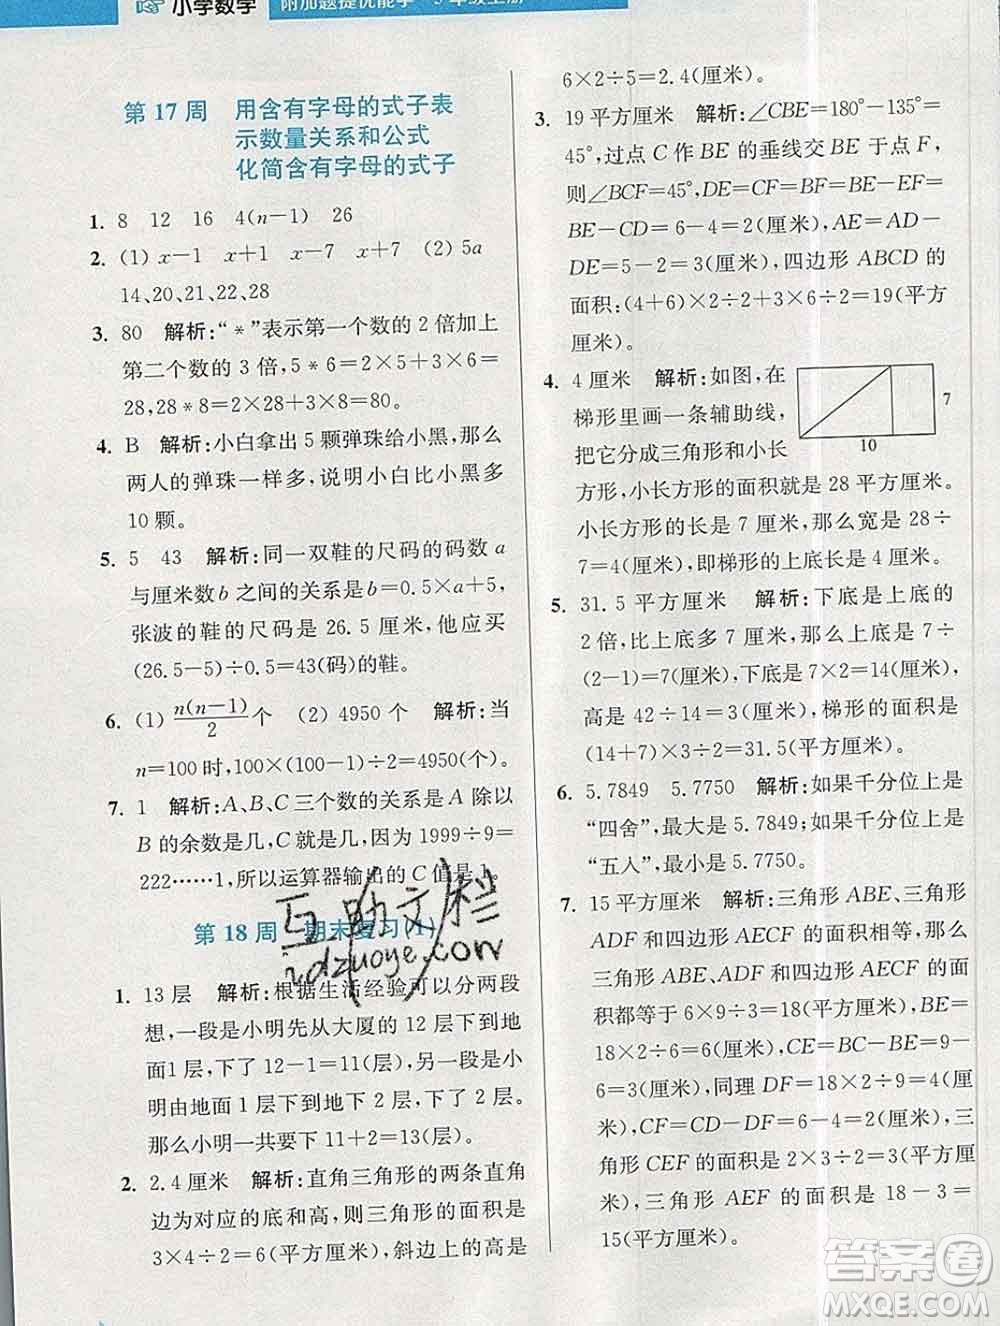 小学数学
第 17 周 用含有字母的式子表
示数量关系和公式
化简含有字母的式子
1. 8 12 16 4(n－1) 26
2. (1) x－1 x＋1 x－7 x＋7 (2) 5a
14、20、21、22、28
3. 80 解析:“＊”表示第一个数的 2 倍加上
第二个数的 3 倍, 5＊6＝2×5＋3×6＝
28, 28＊8＝2×28＋3×8＝80。
4. B 解析:小白拿出 5 颗弹珠给小黑,那么
两人的弹珠一样多,说明小白比小黑多
10 颗。
5. 5 43 解析:同一双鞋的尺码的码数 a
与厘米数 b 之间的关系是 b＝0.5×a＋5,
张波的鞋的尺码是 26.5 厘米,他应买
(26.5－5)÷0.5＝43(码)的鞋。
6. (1) n(n－1)/2 个 (2) 4950 个 解析:当
n＝100 时,100×(100－1)÷2＝4950(个)。
7. 1 解析:A、B、C 三个数的关系是 A 除以
B 的余数是几,C 就是几,因为 1999÷9＝
222……1,所以运算器输出的 C 值是 1。
第 18 周 期末复习(1)
1. 13 层 解析:根据生活经验可以分两段
想,一段是小明先从大厦的 12 层下到地
面1层,下了 12－1＝11(层),另一段是小
明由地面 1 层到地下 2 层,下了 2 层。
那么小明一共要下 11＋2＝13(层)。
2. 2.4 厘米 解析:直角三角形的两条直角
边为对应的底和高,则三角形的面积为
3×4÷2＝6(平方厘米),斜边上的高是
6×2÷5＝2.4(厘米)。
3. 19 平方厘米 解析:∠CBE＝180°－135°＝
45°,过点 C 作 BE 的垂线交 BE 于点 F,
则∠BCF＝45°,DE＝CF＝BF＝BE－EF＝
BE－CD＝6－4＝2(厘米),AE＝AD－
DE＝5－2＝3(厘米),四边形 ABCD 的
面积:(4＋6)×2÷2＋3×6÷2＝19(平方
厘米)。
4. 4 厘米 解析:如图,在
梯形里画一条辅助线,
把它分成三角形和小长
方形,小长方形的面积就是 28 平方厘米。
小长方形的长是 7 厘米,那么宽是 28÷
7＝4(厘米),即梯形的上底是 4 厘米。
7
10
5. 31.5 平方厘米 解析:下底是上底的
2 倍,比上底多 7 厘米,那么上底是 7÷
(2－1)＝7(厘米),下底是 7×2＝14(厘米),
高是 42÷14＝3(厘米),梯形的面积是
(14＋7)×3÷2＝31.5(平方厘米)。
6. 5.7849 5.7750 解析:如果千分位上是
“四舍”,最大是 5.7849;如果千分位上是
“五入”,最小是 5.7750。
7. 15 平方厘米 解析:三角形 ABE、三角形
ADF 和四边形 AECF 的面积相等,那么
三角形 ABE、ADF 和四边形 AECF 的面
积都等于 6×9÷3＝18(平方厘米),BE＝
18×2÷6＝6(厘米),CE＝BC－BE＝9－
6＝3(厘米),同理 DF＝18×2÷9＝4(厘
米),CF＝CD－DF＝6－4＝2(厘米),三角
形 CEF 的面积是 2×3÷2＝3(平方厘
米),三角形 AEF 的面积是 18－3＝
15(平方厘米)。
互助文档
izdzuoye.com
答案圈
MXQE.COM